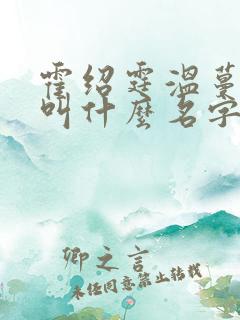 霍绍霆温蔓
叫什麼名字
卿之言
未经同意禁止转载